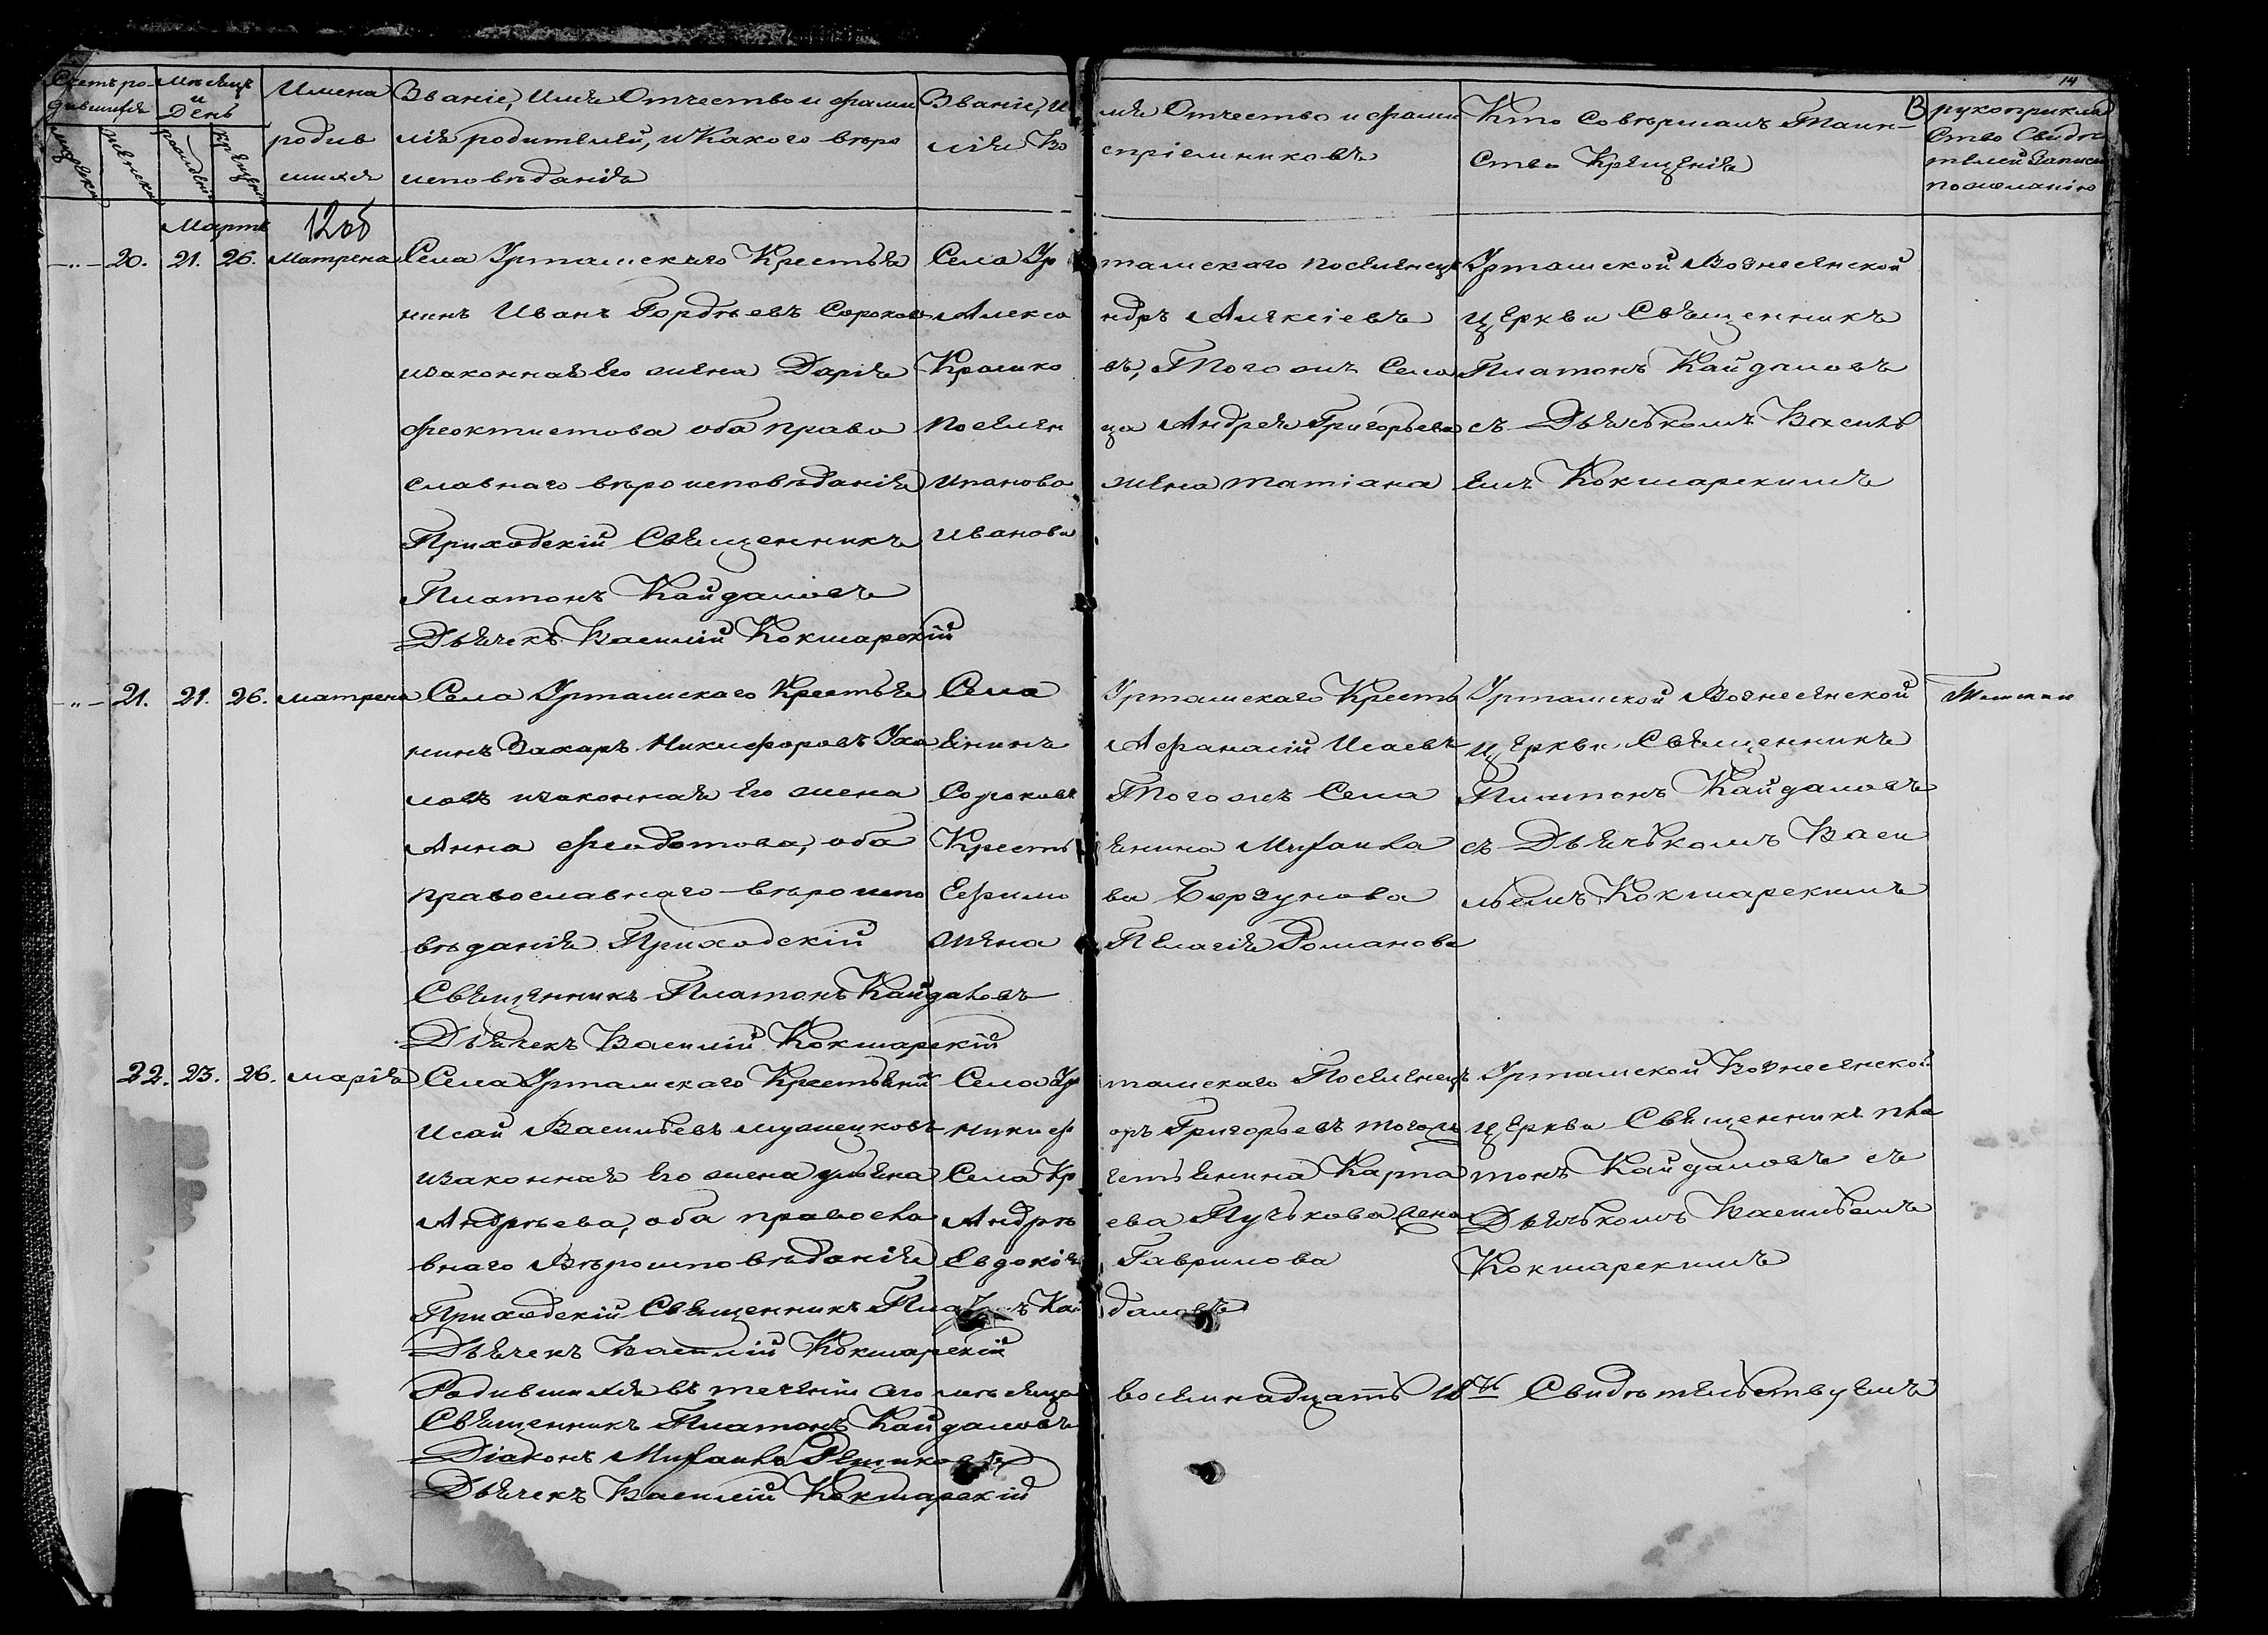 Счетъ ро-
дившихся
Мѣсяцъ
и
День
мужеска
женска
рожденія
крещенія
Имена
родив
шихся
Званіе, Имя Отчество и фами
лія родителей, и Какого вѣро
исповѣданія
Званіе, И
лія Во
мя Отчество и фами
спріемниковъ
Кто Совершалъ Таин-
Ство Крещенія
14
рукоприкла
Ство Свидѣ
телей Записи
по желанію
Марта
12об
-„- 20. 21. 26. Матрена
Села Уртамскаго Крестья
нинъ Иванъ Гордѣевъ Сороков
изаконная Его жена Дарія
феоктистова оба право
славнаго вѣроисповѣданія
Приходскій Священникъ
Платонъ Кайдаловъ
Дьячекъ Василій Кокшарскій
Села Ур
Алекса
Крашко
Поселен
Иванова
тамскаго поселенецъ
ндръ Алексіевъ
въ, Того жъ Села
ца Андрея Григорьева
жена татіана
Уртамской Вознесенской
церкви Священникъ
Платонъ Кайдаловъ
съ Дьячькомъ Василь
емъ Кокшарскимъ
-„- 21. 21. 26. матрена
Села Уртамскаго Крестья
нинъ Захаръ Никифоровъ Уха
ловъ изаконная Его жена
Анна феодотова, оба
православнаго вѣроиспо
вѣданія Приходскій
Священникъ Платонъ Кайдаловъ
Дьячекъ Василій Кокшарскій
Села
Енинъ
Сороковъ
Кресть
Ефимо
жена
Уртамскаго Кресть
Афанасій Исаевъ
Того жъ Села
Енина Михаила
ва Борзунова
Пелагія Романова
Уртамской Вознесенской
церкви Священникъ
Платонъ Кайдаловъ
съ Дьячькомъ Васи
льемъ Кокшарскимъ
22. 23. 26. марія
Села Уртамскаго Крестьяни
Исай Васильевъ
изаконная Его жена ульяна
Андрѣева, оба правосла
внаго Вѣроисповѣданія
Приходскій Священникъ Платонъ Кай
даловъ
Дьячекъ Василій Кокшарскій
Села Ур
Никиф
Села Кр
Андрѣ
Евдокія
тамскаго Поселенецъ
оръ Григорьевъ тогожъ
естьенина Карпа
ева Пучькова жена
Гаврилова
Уртамской Вознесенской
церкви Священникъ пла
тонъ Кайдаловъ съ
Дьячькомъ Васильемъ
Кокшарскимъ
Родившихся въ теченіи сего мѣсяца восемнадцать 18 Свидѣтельствуемъ
Священникъ Платонъ Кайдаловъ
Діаконъ Михаилъ
Дьячекъ Василій Кокшарскій